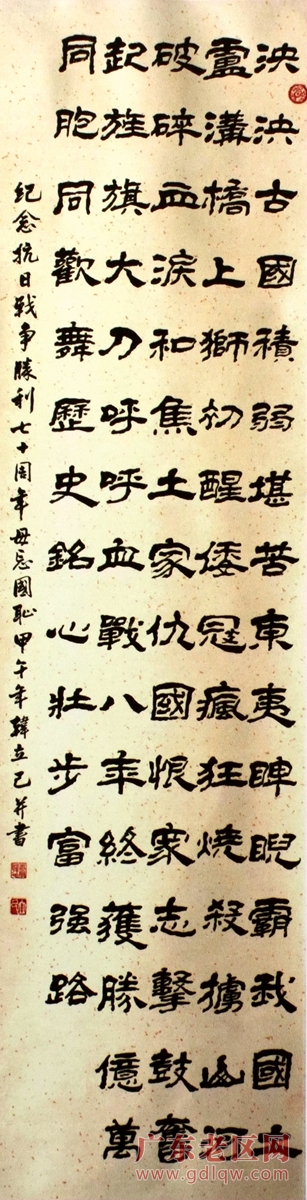 泱泱古國積弱堪苦東夷睥睨霸我國土
盧溝橋上獅初醒倭寇瘋狂燒殺擄山河
破碎血淚和焦土家仇國恨衆志擊鼓奮
起旌旗大刀呼呼血戰八年終獲勝億萬
同胞同歡舞歷史銘心壯步富强路
纪念抗日戰争勝利七十周年毋忘國恥甲午年韓立己并書
广东老区网
www.gdlqw.com